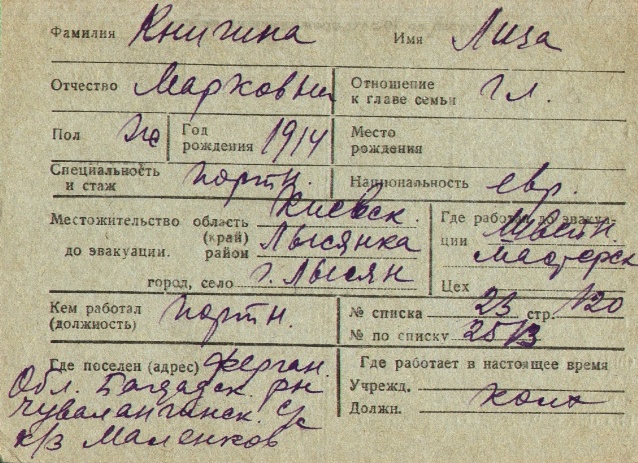 Фамилия Книгина Имя Лиза
Отчество Марковны Отношение к главе семьи гл.
Пол Же Год рождения 1914 Место рождения
Специальность и стаж портн. Национальность евр.
Местожительство область Киевск.
(край)
до эвакуации. район Лысянка
город, село г. Лысян
Где работал до эвакуации Швейн. Мастерск
Цех
Кем работал (должность) портн.
№ списка 23 стр. 120
№ по списку 2513
Где поселен (адрес) Ферган.
Обл. Багдадск. рн
Чуваланчинск. с/с
к/з Маленков
Где работает в настоящее время
Учрежд.
Должн. колх